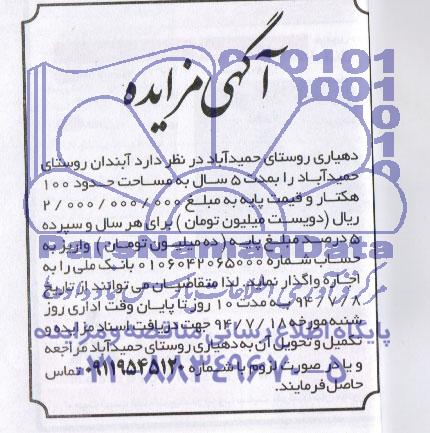 آگهی مزایده
دهیاری روستای حمیدآباد در نظر دارد آبندان روستای
حمیدآباد را بمدت ۵ سال به مساحت حدود ۱۰۰
هکتار و قیمت پایه به مبلغ ۲/۰۰۰/۰۰۰/۰۰۰
ریال (دویست میلیون تومان) برای هر سال و سپرده
۵ درصد مبلغ پایه (ده میلیون تومان) واریز به
حساب شماره ۰۱۰۶۰۴۲۰۶۵۰۰۰ بانک ملی را به
اجاره واگذار نماید. لذا متقاضیان می توانند از تاریخ
۹۴/۷/۸ به مدت ۱۰ روز تا پایان وقت اداری روز
شنبه مورخه ۹۴/۷/۱۸ جهت دریافت اسناد مزایده و
تکمیل و تحویل آن به دهیاری روستای حمیدآباد مراجعه
و یا در صورت لزوم با شماره ۰۹۱۱۹۵۴۵۱۲۰ تماس
حاصل فرمایند.
ParsNamadData
پایگاه اطلاع رسانی مناقصه و مزایده
۰۲۱-۸۸۳۴۹۶۷۰-۵